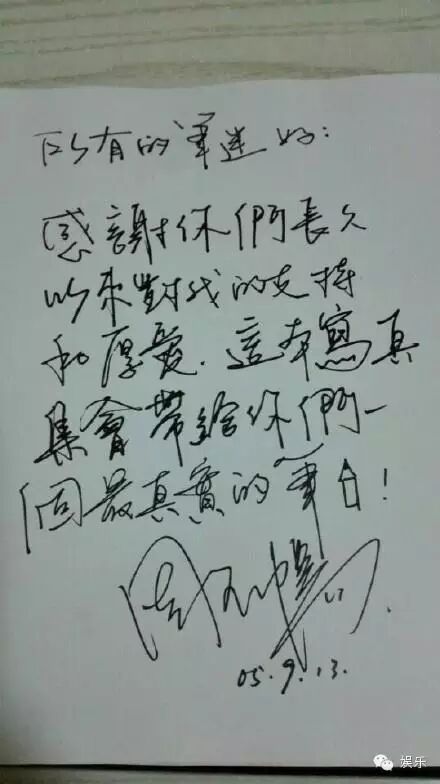 所有的筆迷好：
感謝你們長久
以來對我的支持
和厚愛. 這本寫真
集會帶給你們一
個最真實的筆!
周筆暢
05.9.13.
娱乐